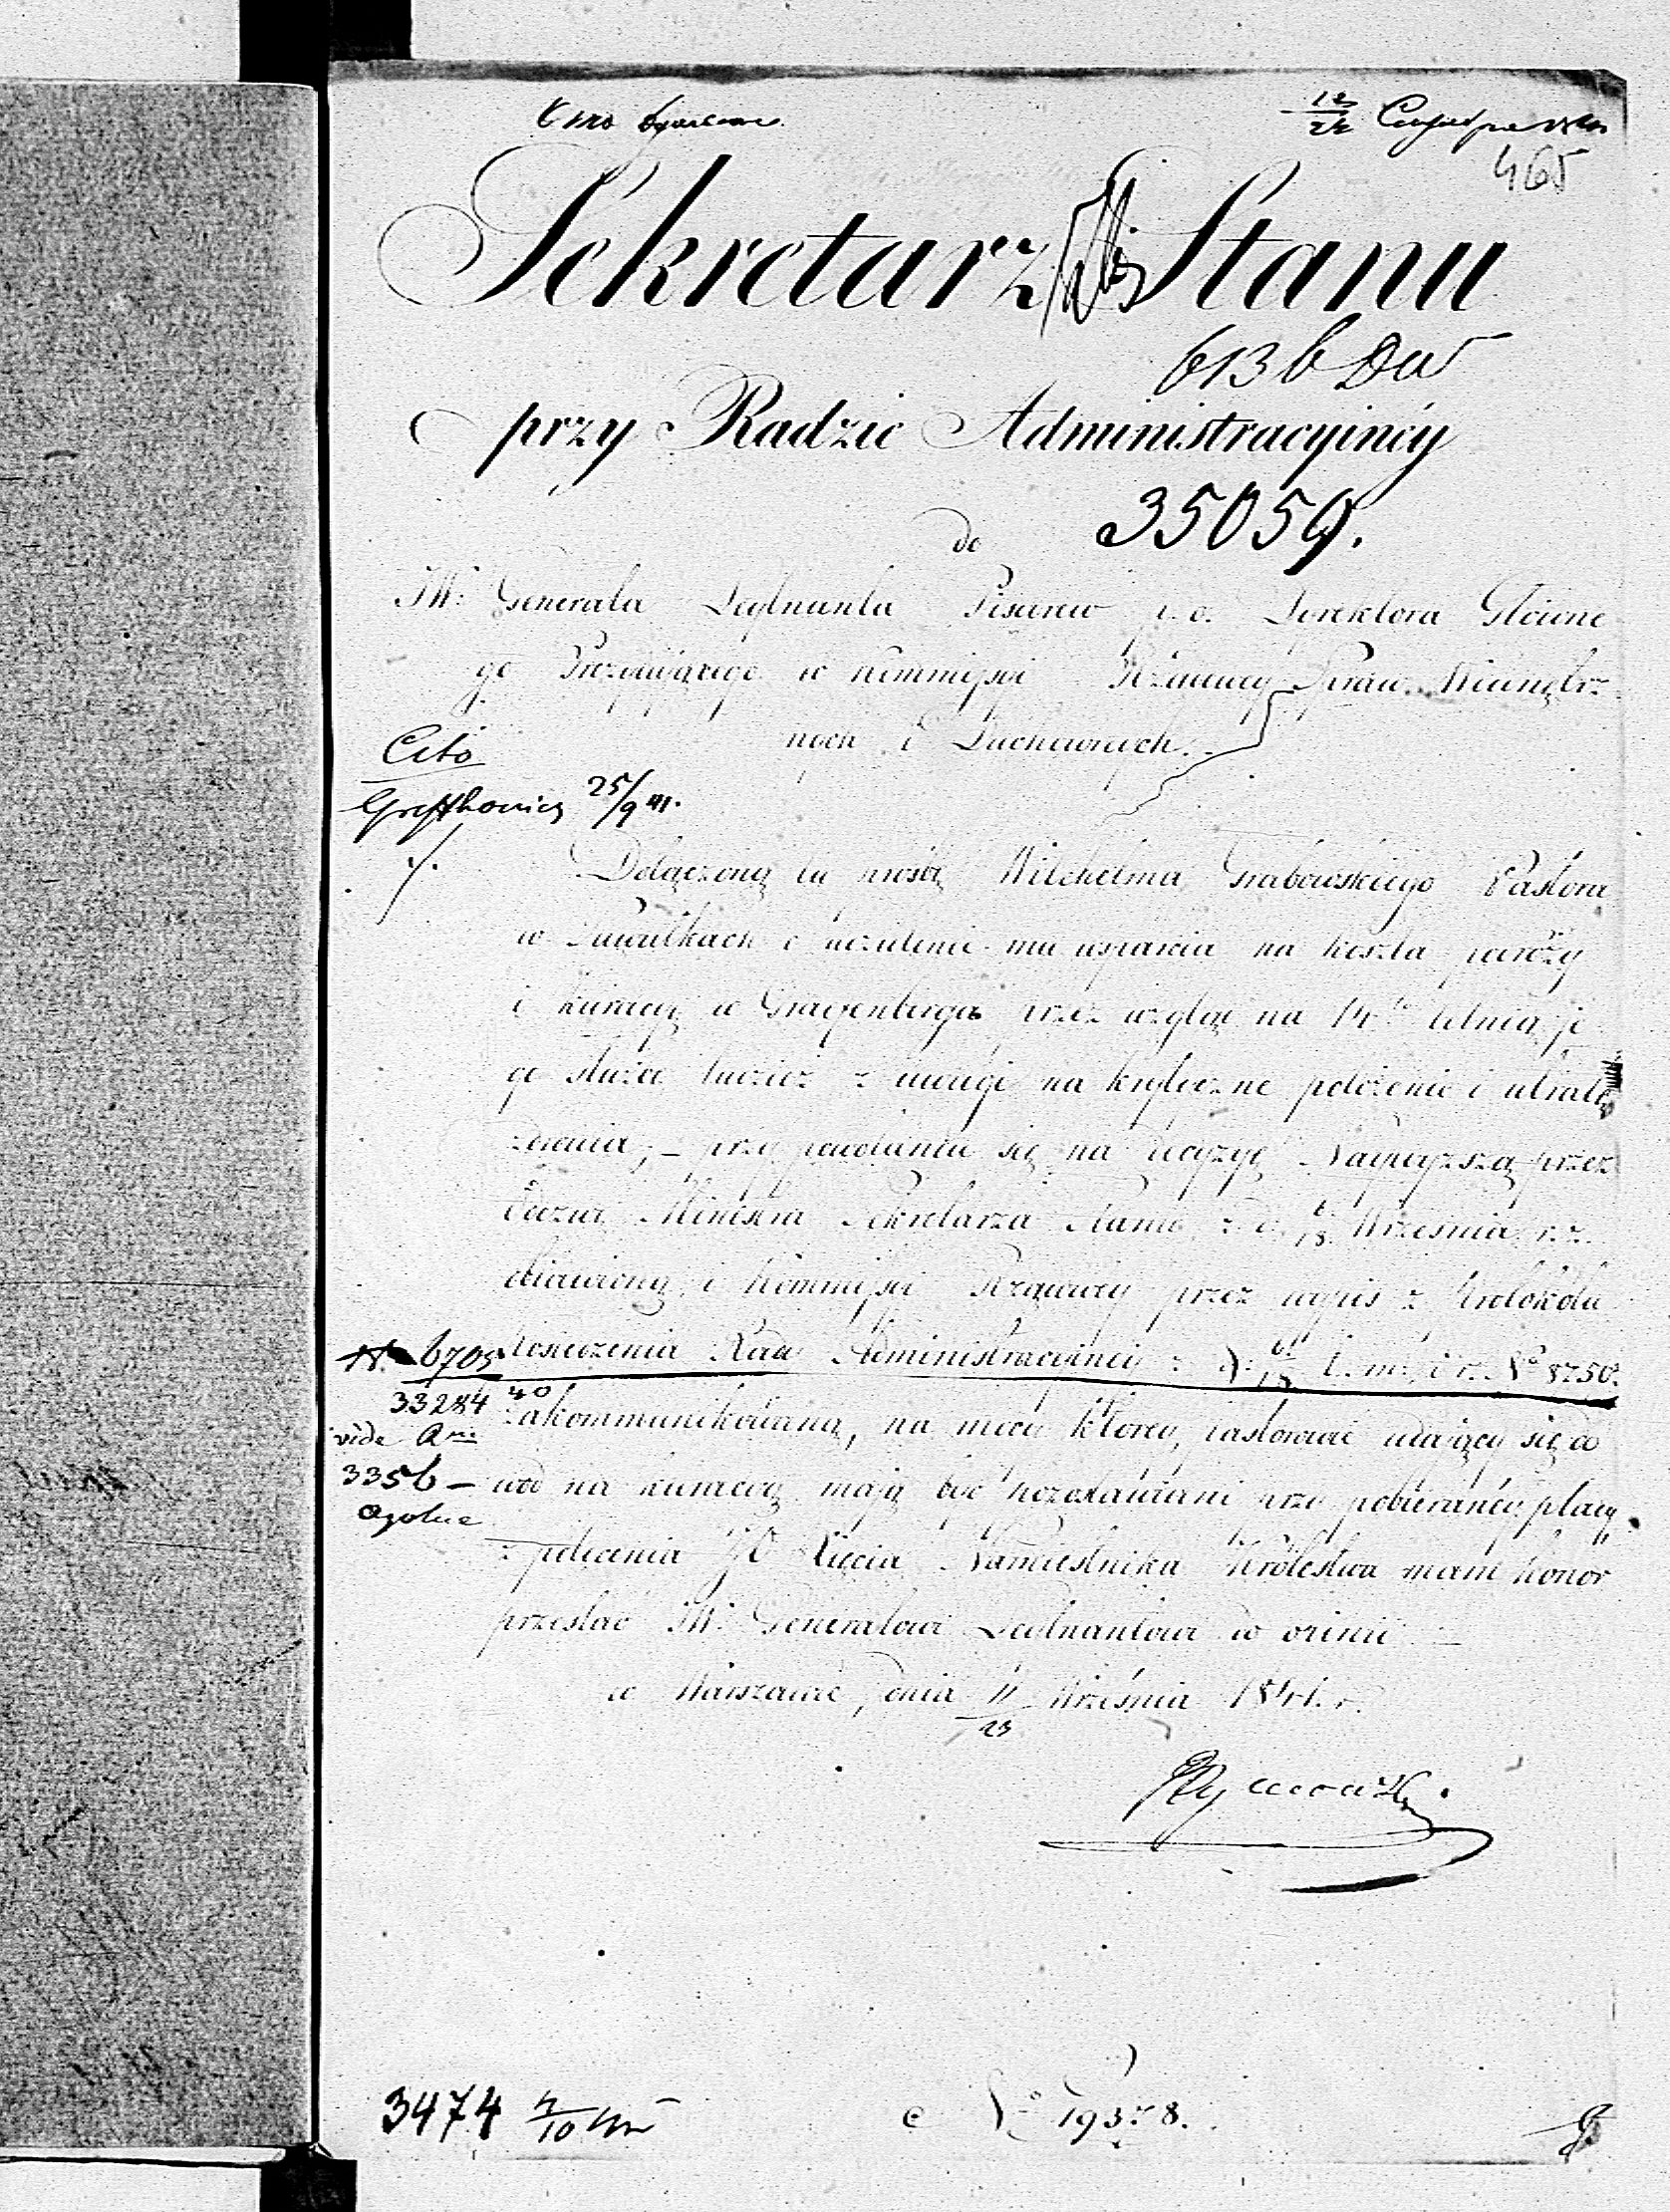 12/24
465
Sekretarz Stanu
613 b Dw
przy Radzie Administracyinéy
35059.
do
JW: Generała Leytnanta Pisarew p. o. Dyrektora Główne
go Prezyduiącego w Kommissyi Rządowey Spraw Wewnętrz
nych i Duchownych.
Cito
25/9 41.
Dołączoną tu prośbę Wilchelma Grabowskiego Pastora
w Suwałkach o udzielenie mu wsparcia na koszta podróży
i kuracyę w przez wzgląd na 14to letnią je
go służbę tudzież z uwagi na krytyczne położenie i utratę
zdrowia, – przy powołaniu się na decyzyę Naywyższą przez
Ministra Sekretarza Stanu z d. 6/18 Września r. z.
obiawioną i Kommissyi Rządowey przez wypis z Protokółu
N. 6705 Posiedzenia Rady Administracyinéy z d: 6/18 t. m. i r. No 8750.
33284 40 zakommunikowaną, na mocy któréy, Pastorowie udaiący się do
vide
3356 – wód na kuracyę maią być pozostawiani przy pobieraniu płacy,
ogólne
z polecenia JO Xięcia Namiestnika Królestwa mam honor
przesłać JW. Generałowi Leytnantowi w
w Warszawie, dnia 11/23 Września 1841. r.
3474 4/10
No 19378.